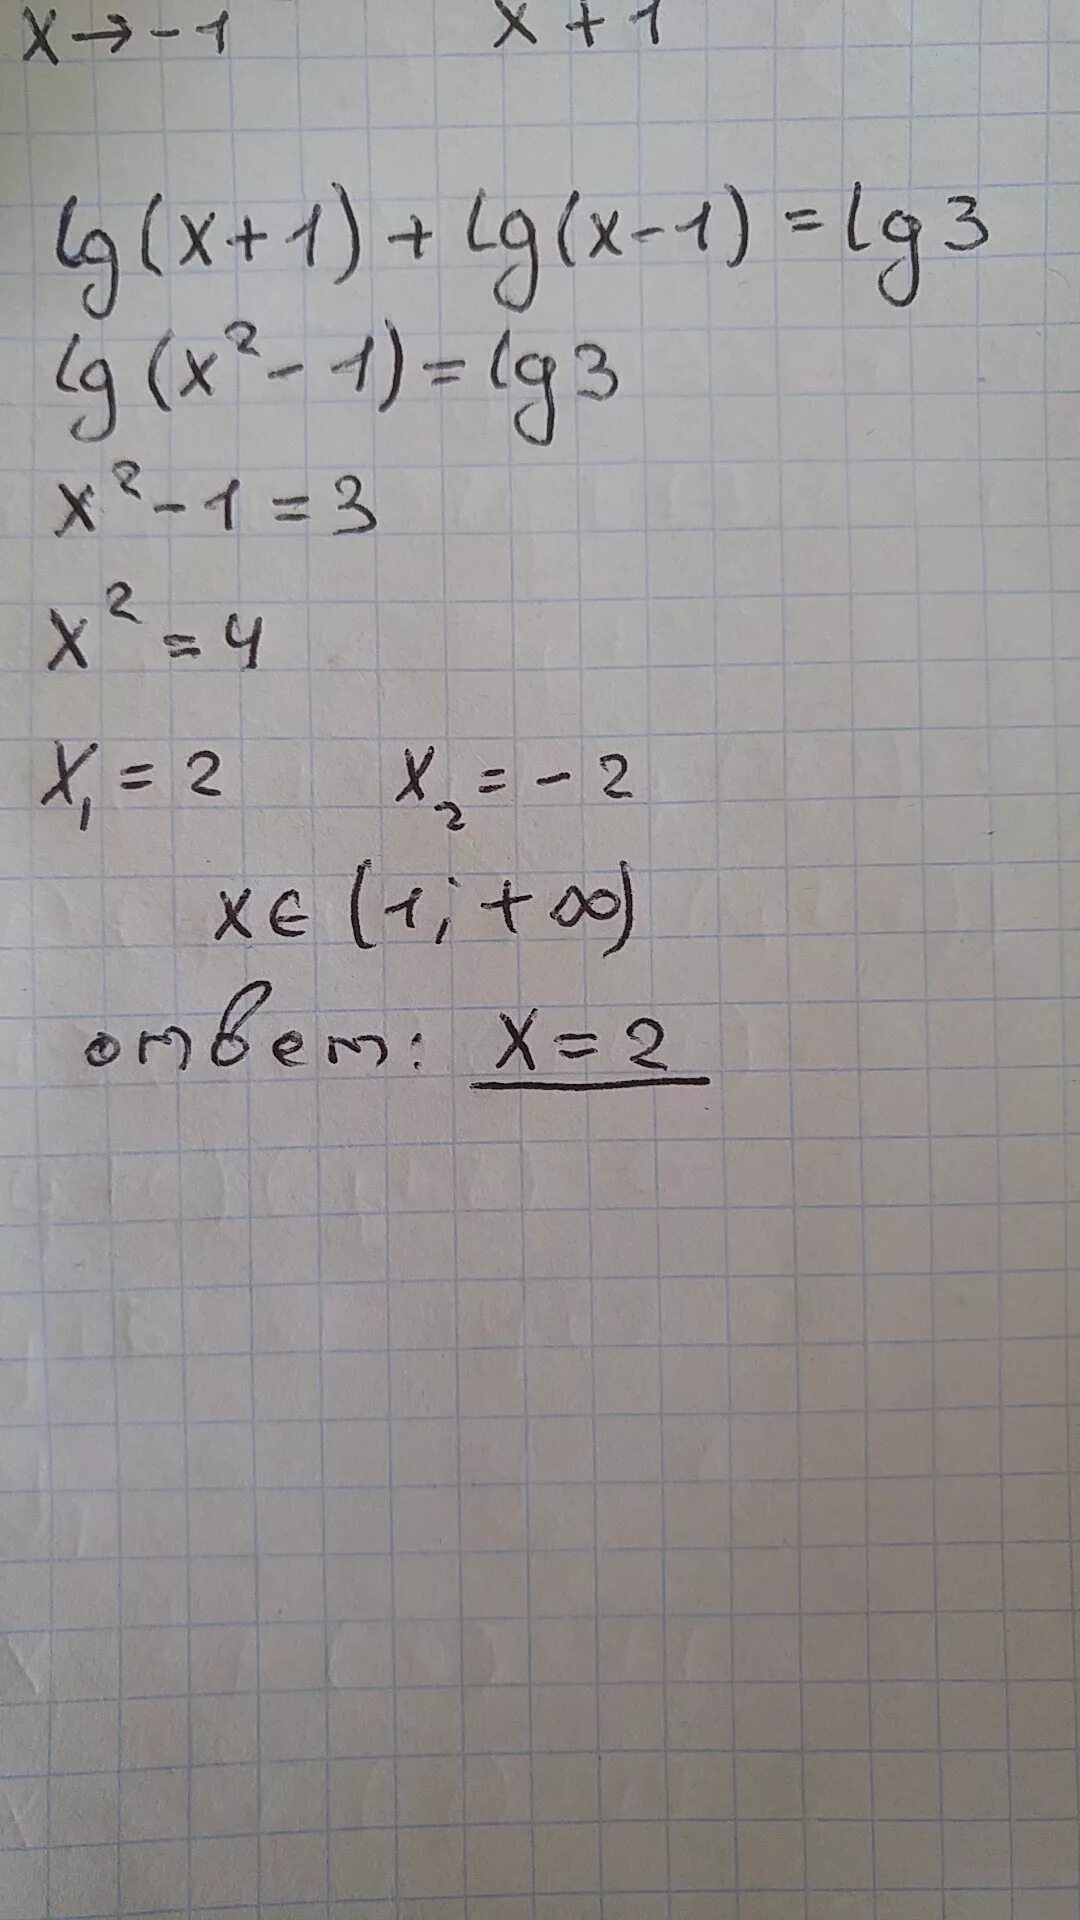 x→-1 x+1
lg(x+1)+lg(x-1)=lg3
lg(x²-1)=lg3
x²-1=3
x²=4
x₁=2 x₂=-2
x∈(1;+∞)
ответ: x=2